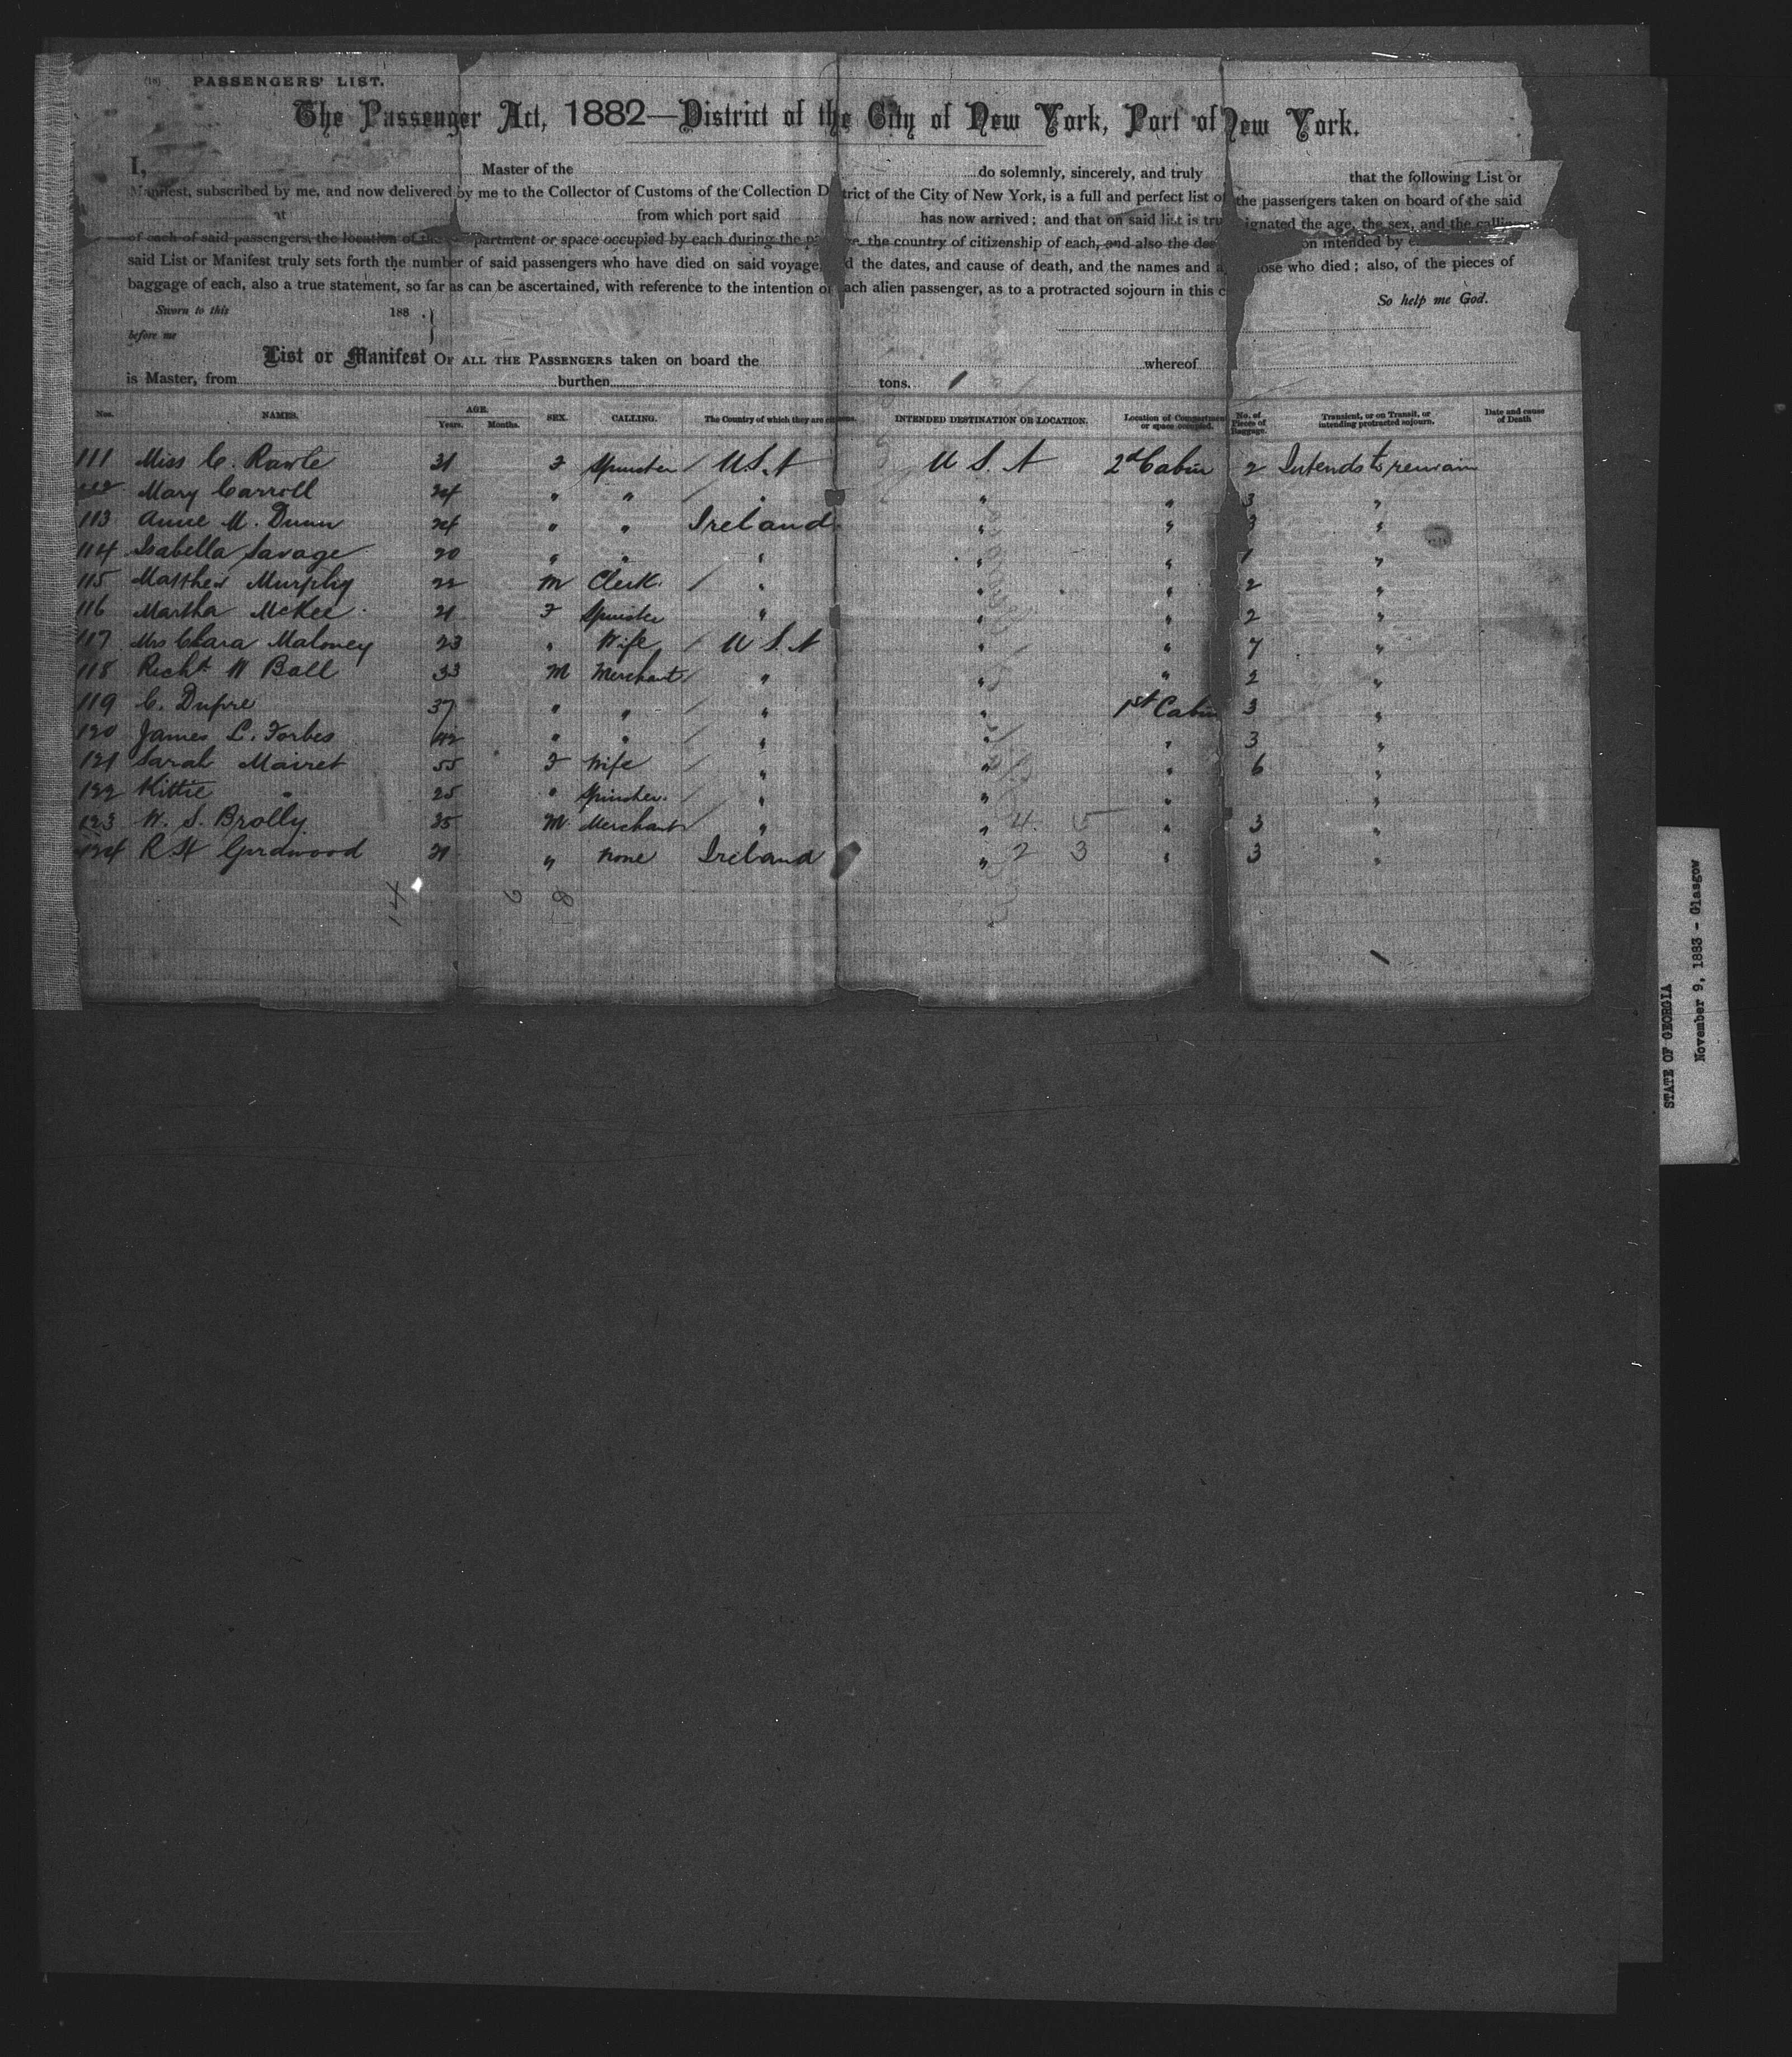 (18) PASSENGERS' LIST.
The Passenger Act, 1882—District of the City of New York, Port of New York.
I, Master of the do solemnly, sincerely, and truly that the following List or
Manifest, subscribed by me, and now delivered by me to the Collector of Customs of the Collection District of the City of New York, is a full and perfect list of the passengers taken on board of the said
at from which port said has now arrived; and that on said list is tru ignated the age, the sex, and the calling
of each of said passengers, the location of the partment or space occupied by each during the p e, the country of citizenship of each, and also the des on intended by
said List or Manifest truly sets forth the number of said passengers who have died on said voyage, d the dates, and cause of death, and the names and a ose who died; also, of the pieces of
baggage of each, also a true statement, so far as can be ascertained, with reference to the intention of each alien passenger, as to a protracted sojourn in this c So help me God.
Sworn to this 188 .
before me
List or Manifest OF ALL THE PASSENGERS taken on board the whereof
is Master, from burthen tons.
Nos. NAMES. AGE. Years. Months. SEX. CALLING. The Country of which they are citizens. INTENDED DESTINATION OR LOCATION. Location of Compartment or space occupied. No. of Pieces of Baggage. Transient, or on Transit, or intending protracted sojourn. Date and cause of Death
111 Miss C. Rawle 31 F Spinster / U.S.A U S. A 2d Cabin 2 Intends to remain
112 Mary Carroll 24 " " / " " " 3 "
113 Annie M. Dunn 24 " " Ireland " " 3 "
114 Isabella Savage 20 " " " " " 1 "
115 Matthew Murphy 22 M Clerk / " " " 2 "
116 Martha McKee 21 F Spinster " " " 2 "
117 Mrs Clara Maloney 23 " Wife / U S. A " " 7 "
118 Richt W Ball 33 M Merchant / " " " 2 "
119 C. Dupre 37 " " / " " 1st Cabin 3 "
120 James L. Forbes 42 " " / " " " 3 "
121 Sarah Mairet 55 F Wife / " " " 6 "
122 Kittie " 25 " Spinster / " " "
123 W. S. Brolly 35 M Merchant / " " 4 5 " 3 "
124 R H Girdwood 21 " None Ireland " 2 3 " 3 "
14 6 8
STATE OF GEORGIA
November 9, 1883 - Glasgow